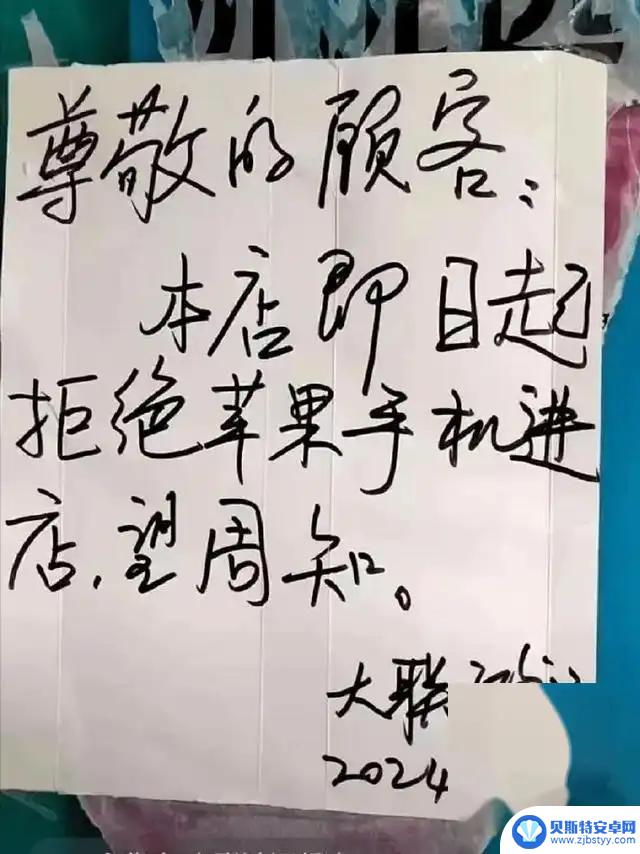 尊敬的顾客：
本店即日起
拒绝苹果手机进
店，望周知。
大联
2024
贝斯特安卓网
www.zjbstyy.com